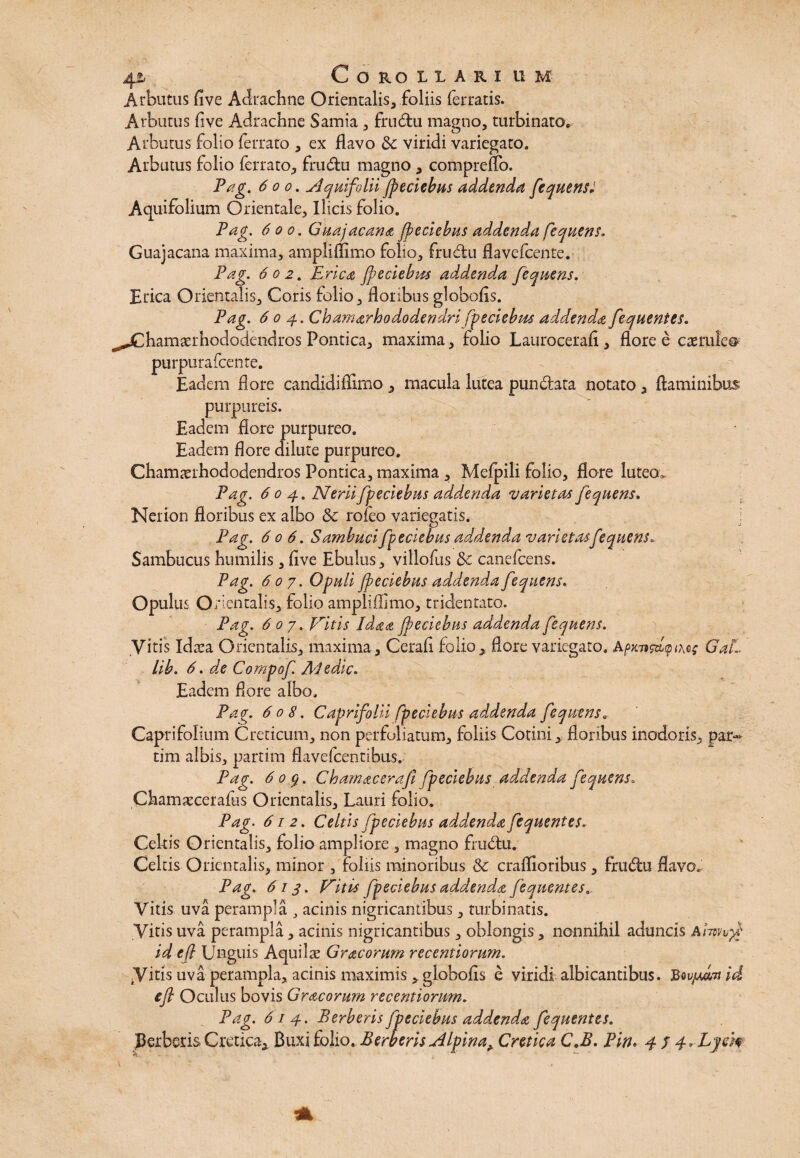 42 COROLLARIUM
Arbutus ſive Adrachne Orientalis, foliis ſerratis.
Arbutus ſive Adrachne Samia, fructu magno, turbinato.
Arbutus folio ſerrato, ex flavo & viridi variegato.
Arbutus folio ſerrato, fructu magno, compreſſo.
Pag. 600. Aquifolii ſpeciebus addenda ſequens.
Aquifolium Orientale, Ilicis folio.
Pag. 600. Guajacanæ ſpeciebus addenda ſequens.
Guajacana maxima, ampliſſimo folio, fructu flaveſcente.
Pag. 602. Ericæ ſpeciebus addenda ſequens.
Erica Orientalis, Coris folio, floribus globoſis.
Pag. 604. Chamærhododendri ſpeciebus addendæ ſequentes.
Chamærhododendros Pontica, maxima, folio Lauroceraſi, flore è cæruleo
purpuraſcente.
Eadem flore candidiſſimo, macula lutea punctata notato, ſtaminibus
purpureis.
Eadem flore purpureo.
Eadem flore dilute purpureo.
Chamærhododendros Pontica, maxima, Meſpili folio, flore luteo.
Pag. 604. Nerii ſpeciebus addenda varietas ſequens.
Nerion floribus ex albo & roſeo variegatis.
Pag. 606. Sambuci ſpeciebus addenda varietas ſequens.
Sambucus humilis, ſive Ebulus, villoſus & caneſcens.
Pag. 607. Opuli ſpeciebus addenda ſequens.
Opulus Orientalis, folio ampliſſimo, tridentato.
Pag. 607. Vitis Idææ ſpeciebus addenda ſequens.
Vitis Idæa Orientalis, maxima, Ceraſi folio, flore variegato. Αρκτοςάφιλος Gal.
lib. 6. de Compoſ. Medic.
Eadem flore albo.
Pag. 608. Caprifolii ſpeciebus addenda ſequens.
Caprifolium Creticum, non perfoliatum, foliis Cotini, floribus inodoris, par-
tim albis, partim flaveſcentibus.
Pag. 609. Chamæceraſi ſpeciebus addenda ſequens.
Chamæceraſus Orientalis, Lauri folio.
Pag. 612. Celtis ſpeciebus addendæ ſequentes.
Celtis Orientalis, folio ampliore, magno fructu.
Celtis Orientalis, minor, foliis minoribus & craſſioribus, fructu flavo.
Pag. 613. Vitis ſpeciebus addendæ ſequentes.
Vitis uvâ peramplâ, acinis nigricantibus, turbinatis.
Vitis uvâ peramplâ, acinis nigricantibus, oblongis, nonnihil aduncis
id eſt Unguis Aquilæ Græcorum recentiorum.
Vitis uvâ perampla, acinis maximis, globoſis è viridi albicantibus. id
eſt Oculus bovis Græcorum recentiorum.
Pag. 614. Berberis ſpeciebus addendæ ſequentes.
Berberis Cretica, Buxi folio. Berberis Alpina, Cretica C.B. Pin. 454.